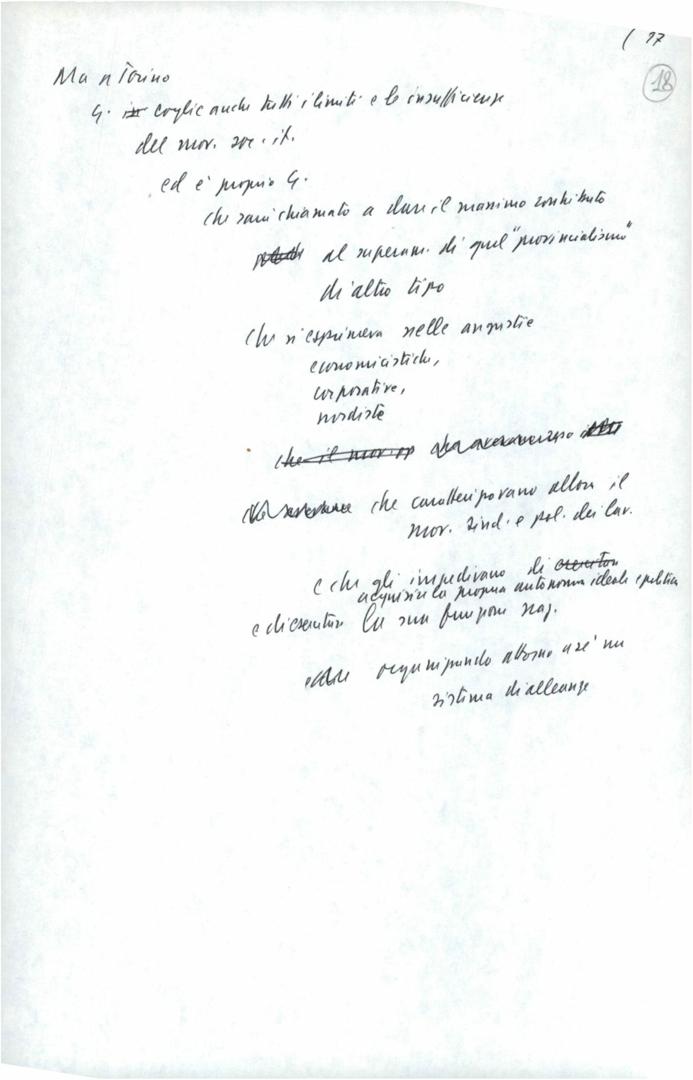 ( 17
18
Ma a Torino
G. in coglie anche tutti i limiti e le insufficienze
del mov. soc. it.
ed è proprio G.
che sarà chiamato a dare il massimo contributo
al superam. di quel "provincialismo"
di altro tipo
che si esprimeva nelle angustie
economicistiche,
corporative,
nordiste
che il mov.
che caratterizzavano allora il
mov. sind. e pol. dei lav.
e che gli impedivano di
acquisire la propria autonomia ideale e politica
e di esercitare la sua funzione naz.
organizzando attorno a sé un
sistema di alleanze